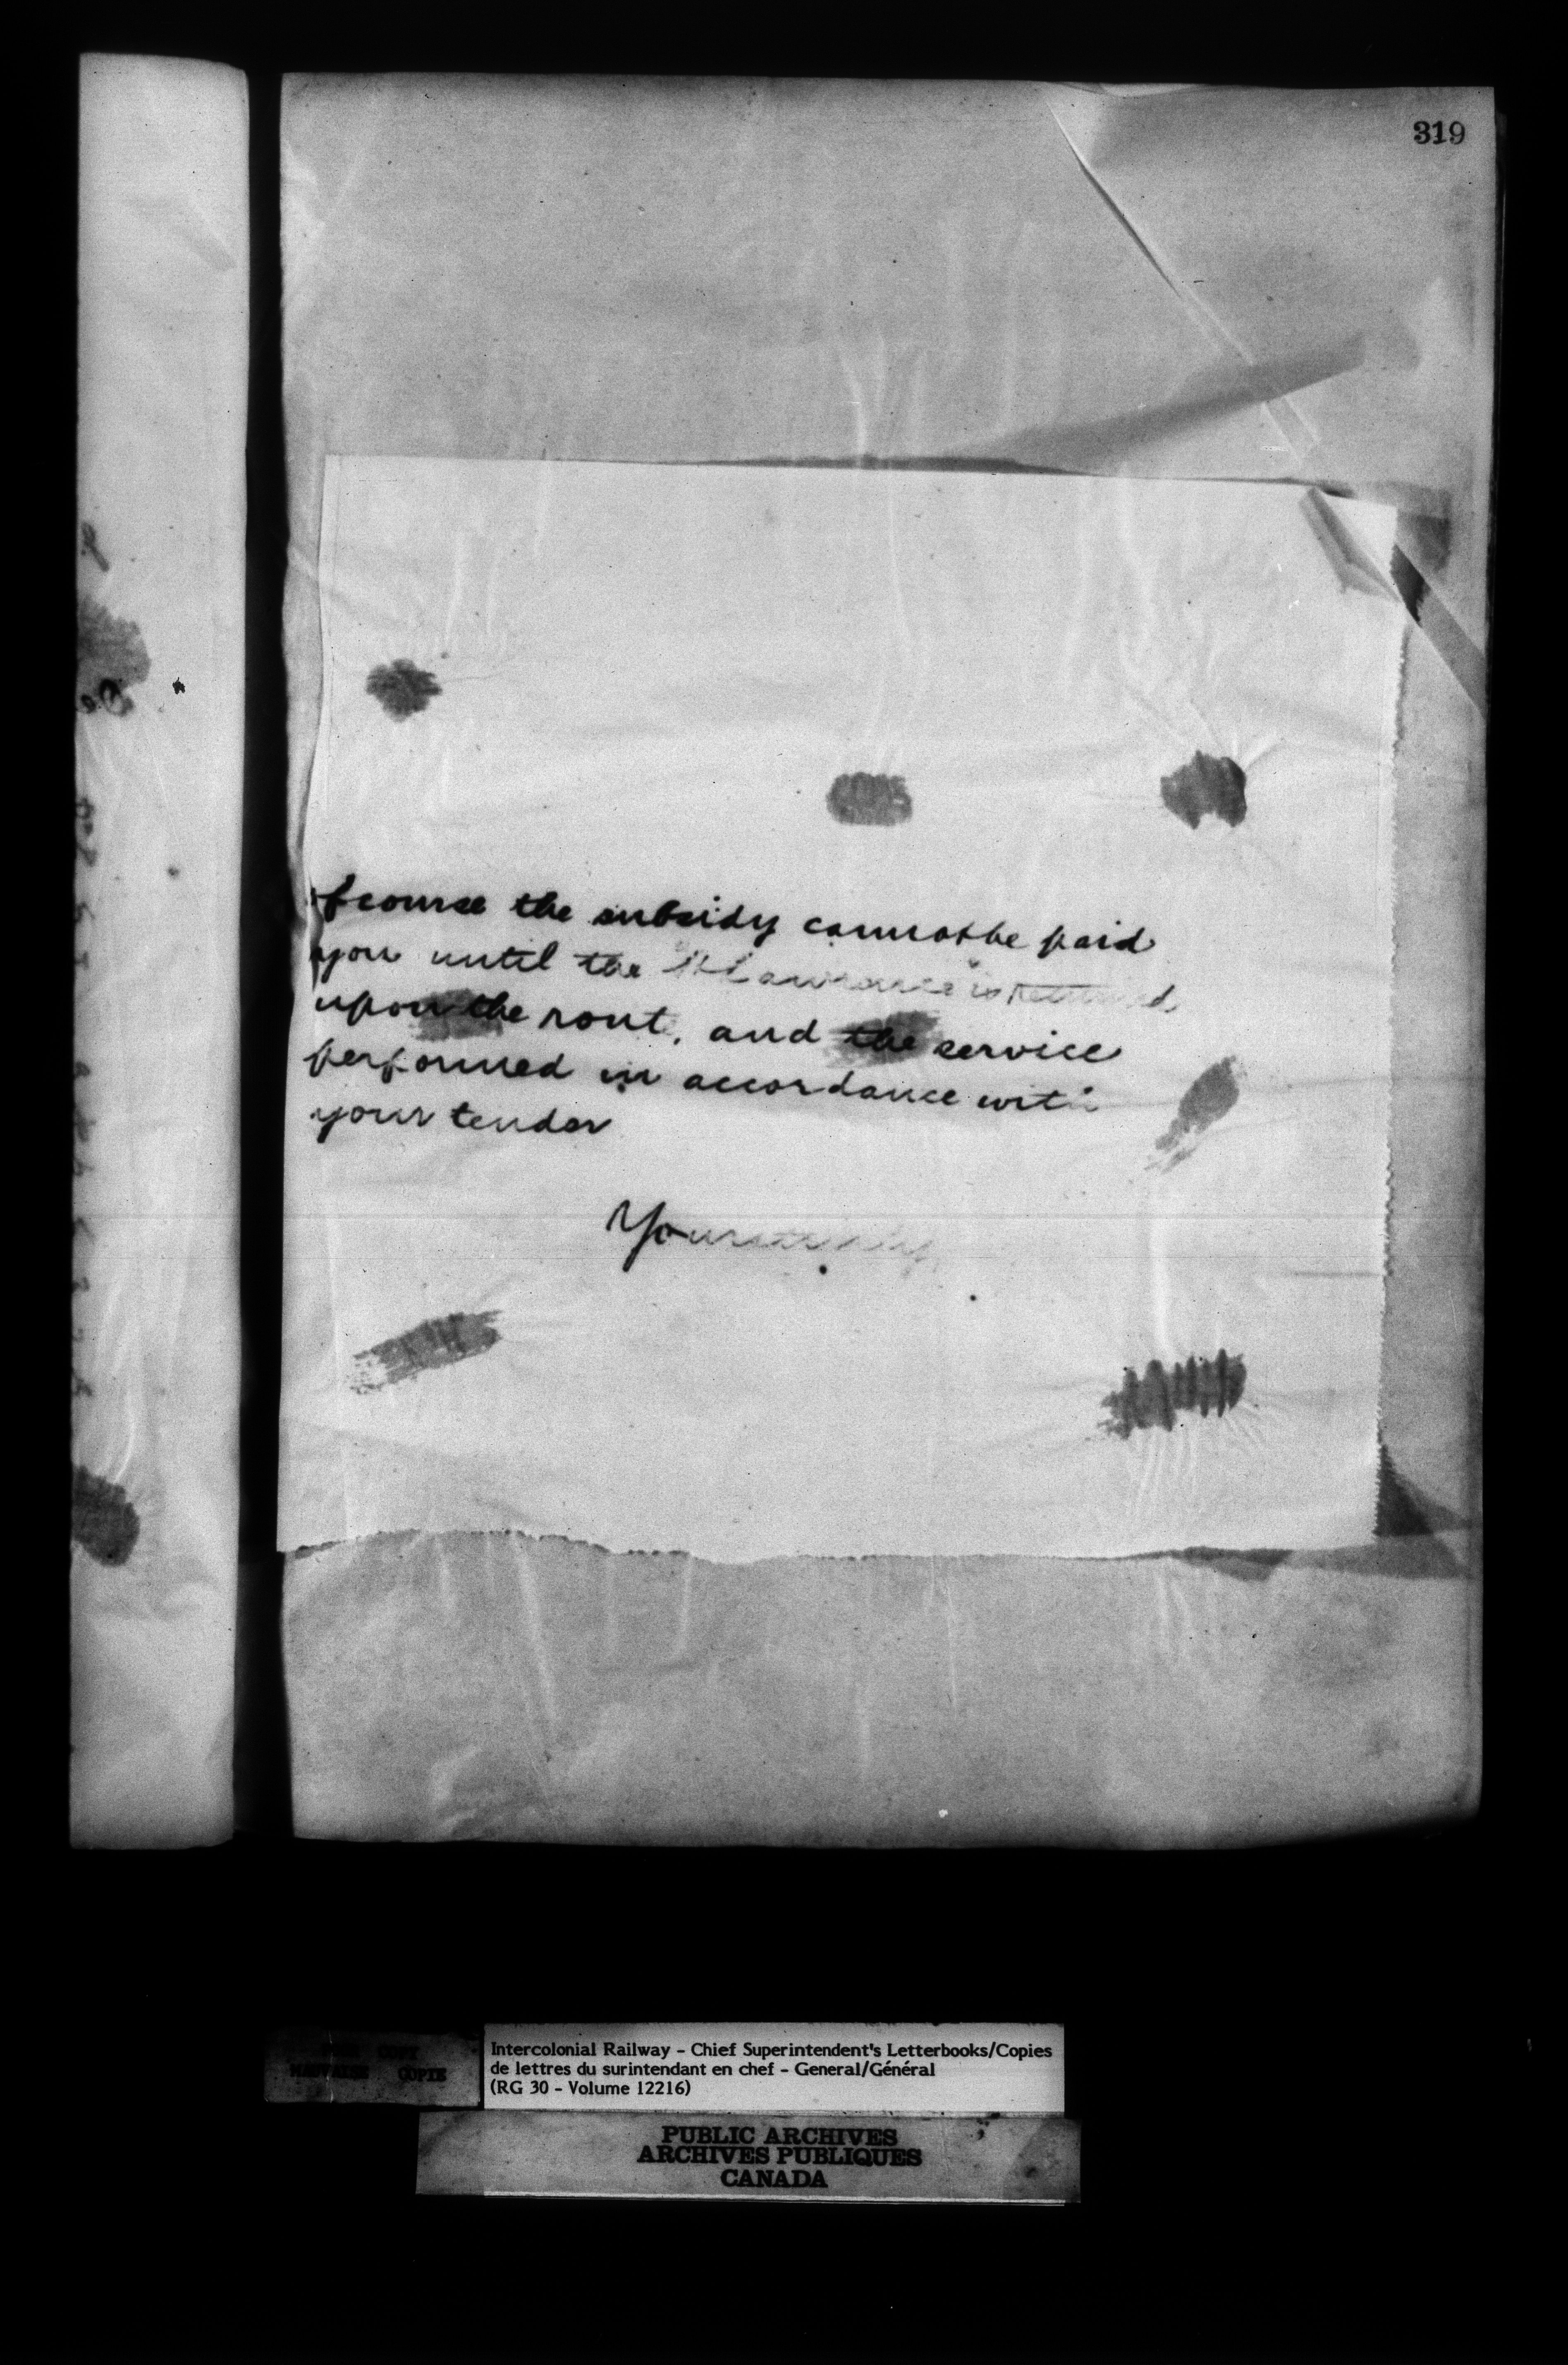 319
Of course the subsidy cannot be paid
you until the "St Lawrence" is returned
upon the route, and the service
performed in accordance with
your tender
Yours truly
POOR COPY
MAUVAISE COPIE
Intercolonial Railway - Chief Superintendent's Letterbooks/Copies
de lettres du surintendant en chef - General/Général
(RG 30 - Volume 12216)
PUBLIC ARCHIVES
ARCHIVES PUBLIQUES
CANADA